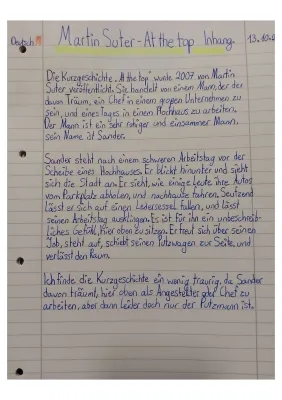 Deutsch Martin Suter - At the top Inhang. 13.10.
Die Kurzgeschichte „At the top" wurde 2007 von Martin
Suter veröffentlicht. Sie handelt von einem Mann, der der
davon Träum, ein Chef in einem großen Unternehmen zu
sein, und eines Tages in einem Hochhaus zu arbeiten.
Der Mann ist ein sehr ruhiger und einsammer Mann,
sein Name ist Sander.
Sander steht nach einem schweren Arbeitstag vor der
Scheibe eines Hochhauses. Er blickt hinunter und sieht
sich die Stadt an. Er sieht, wie einige Leute ihre Autos
vom Parkplatz abholen, und nachhause fahren. Seufzend
lässt er sich auf einen Ledersessel fallen, und lässt
seinen Arbeitstag ausklingen. Es ist für ihn ein unbeschreib-
liches Gefühl, hier oben zu sitzen. Er freut sich über seinen
Job, steht auf, schiebt seinen Putzwagen zur Seite, und
verlässt den Raum.
Ich finde die Kurzgeschichte ein wenig traurig, da Sander
davon träumt, hier oben als Angestellter oder Chef zu
arbeiten, aber dann leider doch nur der Putzmann ist.